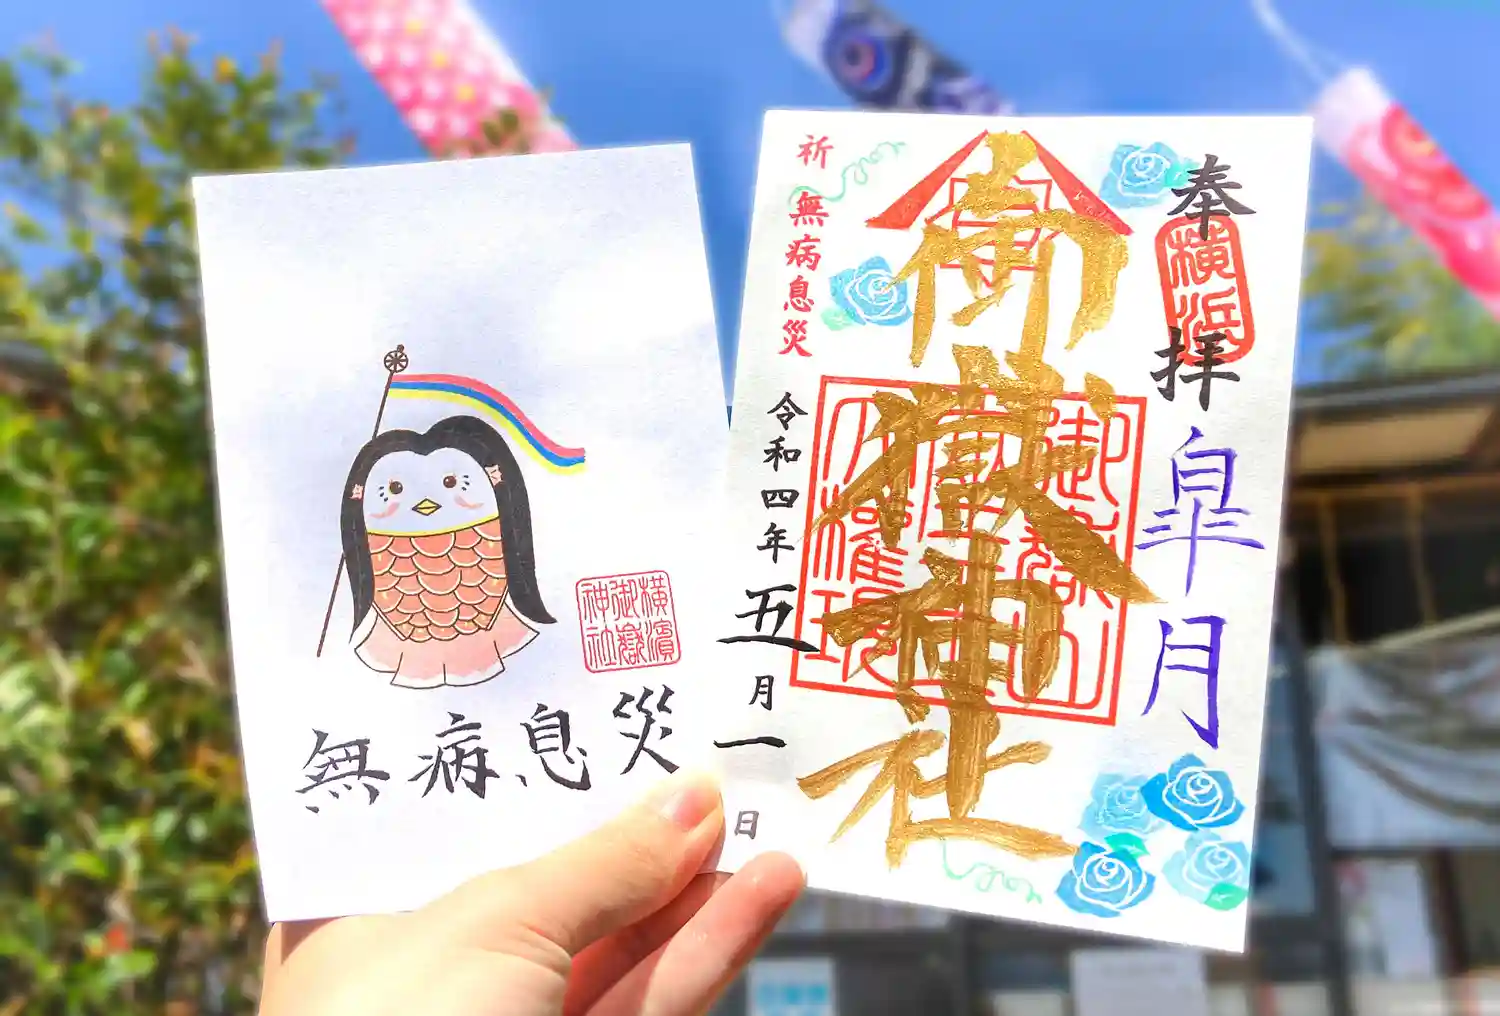 奉拝
横浜
皐月
御嶽神社
御嶽山
蔵王
大権現
祈 無病息災
令和四年五月一日
横濱
御嶽
神社
無病息災